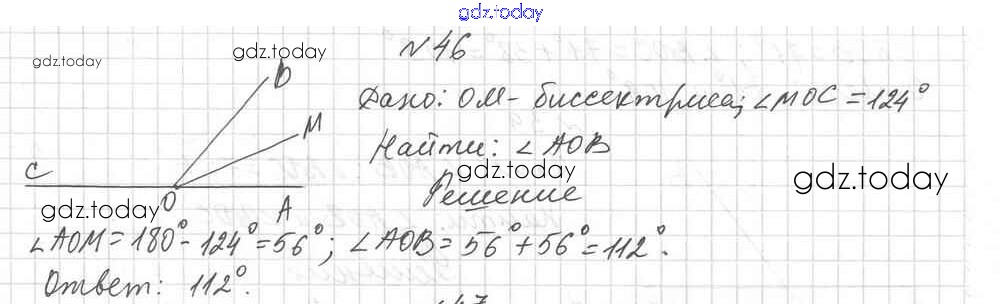 gdz.today
№ 46
gdz.today
gdz.today
B
Дано: OM - биссектриса; ∠MOC = 124°
M
Найти: ∠AOB
C
gdz.today
gdz.today
Решение
gdz.today
O
A
∠AOM = 180° - 124° = 56°; ∠AOB = 56° + 56° = 112°.
Ответ: 112°.